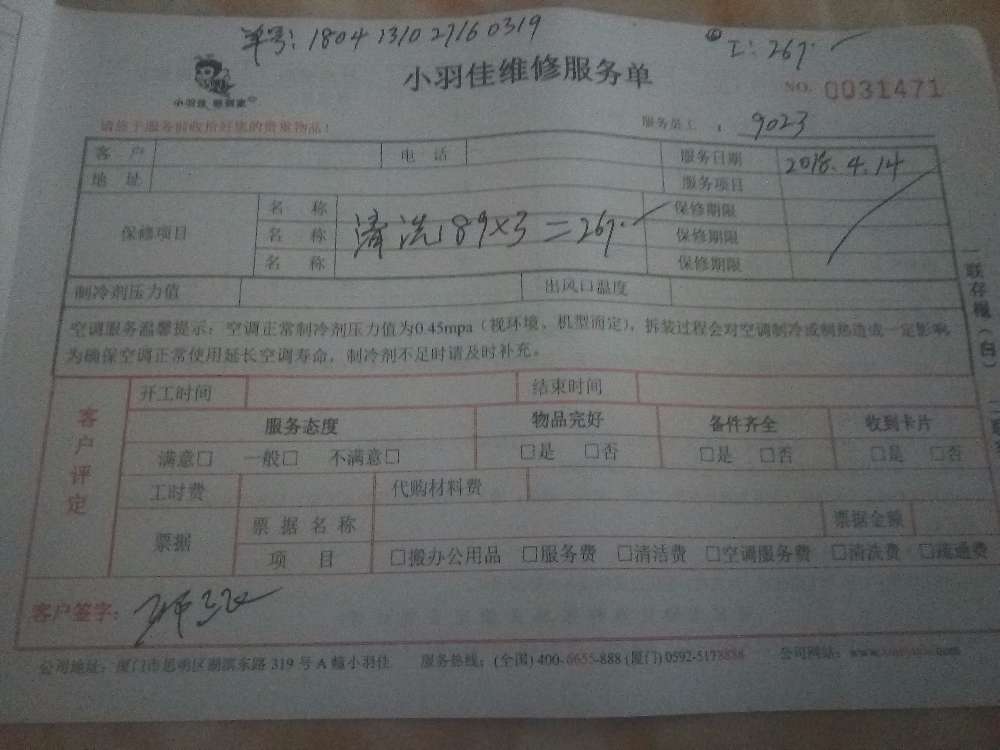 单号: 1804 1310 2716 0319
工: 267.
小羽佳维修服务单
小羽佳 帮到家
NO. 0031471
请您于服务前收拾好您的贵重物品！
服务员工： 9023
客 户 电 话 服务日期 2018.4.14
地 址 服务项目
保修项目
名 称 保修期限
名 称 清洗 89×3=267. 保修期限
名 称 保修期限
制冷剂压力值 出风口温度
空调服务温馨提示：空调正常制冷剂压力值为0.45mpa（视环境、机型而定），拆装过程会对空调制冷或制热造成一定影响
为确保空调正常使用延长空调寿命，制冷剂不足时请及时补充。
客户评定
开工时间 结束时间
服务态度 物品完好 备件齐全 收到卡片
满意□ 一般□ 不满意□ □是 □否 □是 □否 □是 □否
工时费 代购材料费
票据
票 据 名 称 票据金额
项 目 □搬办公用品 □服务费 □清洁费 □空调服务费 □清洗费 □疏通费
客户签字：
公司地址：厦门市思明区湖滨东路 319 号 A 幢小羽佳 服务热线：(全国) 400-6655-888 (厦门) 0592-5178888 公司网站：www.
联存根（白）